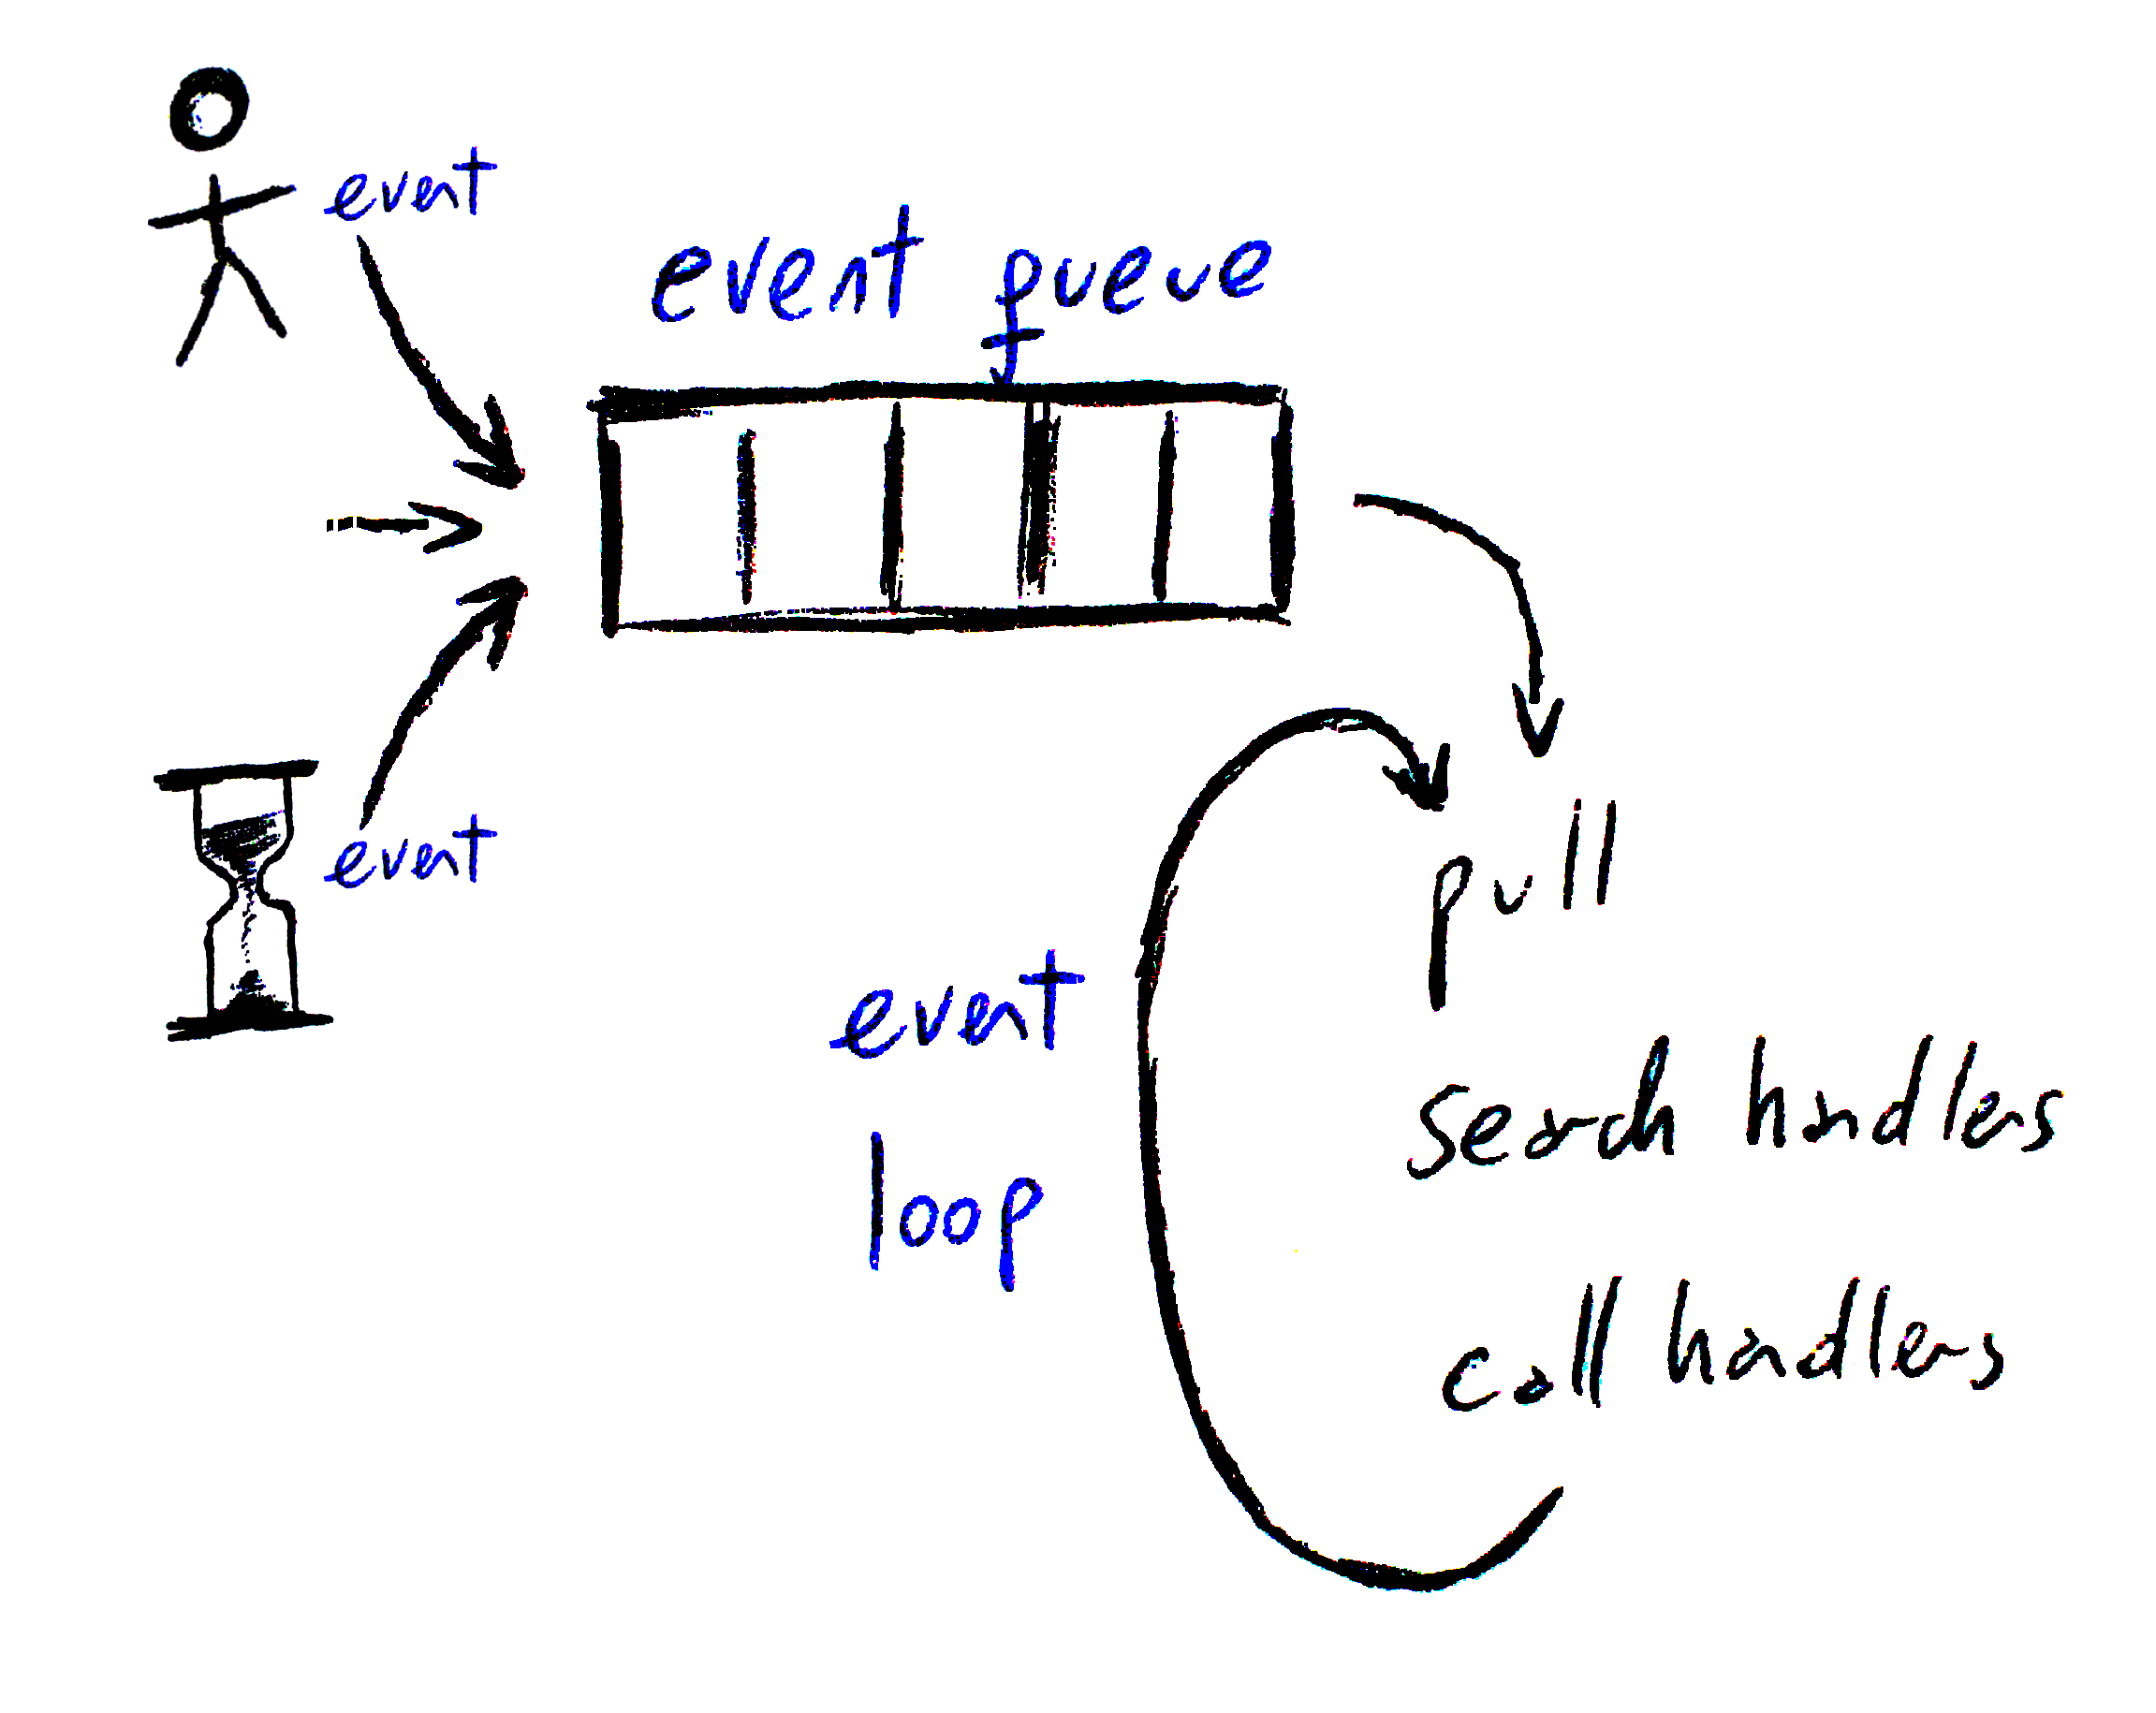 event
event queue
event
pull
event
loop
search handlers
call handlers